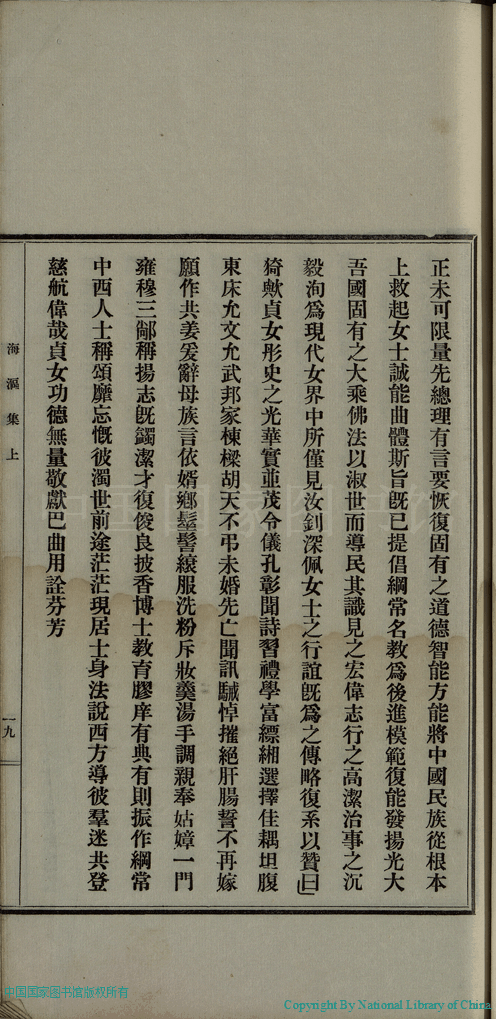 正未可限量先總理有言要恢復固有之道德智能方能將中國民族從根本
上救起女士誠能曲體斯旨旣已提倡綱常名教爲後進模範復能發揚光大
吾國固有之大乘佛法以淑世而導民其識見之宏偉志行之高潔治事之沉
毅洵爲現代女界中所僅見汝釗深佩女士之行誼旣爲之傳略復系以贊曰
猗歟貞女彤史之光華實並茂令儀孔彰聞詩習禮學富縹緗選擇佳耦坦腹
東床允文允武邦家棟樑胡天不弔未婚先亡聞訊駴悼摧絕肝腸誓不再嫁
願作共姜爰辭母族言依婿鄉髽髻縗服洗粉斥妝羹湯手調親奉姑嫜一門
雍穆三鄰稱揚志旣蠲潔才復俊良披香博士教育膠庠有典有則振作綱常
中西人士稱頌靡忘慨彼濁世前途茫茫現居士身法說西方導彼羣迷共登
慈航偉哉貞女功德無量敬獻巴曲用詮芬芳
海漚集上
一九
中国国家图书馆
中国国家图书馆版权所有
Copyright By National Library of China